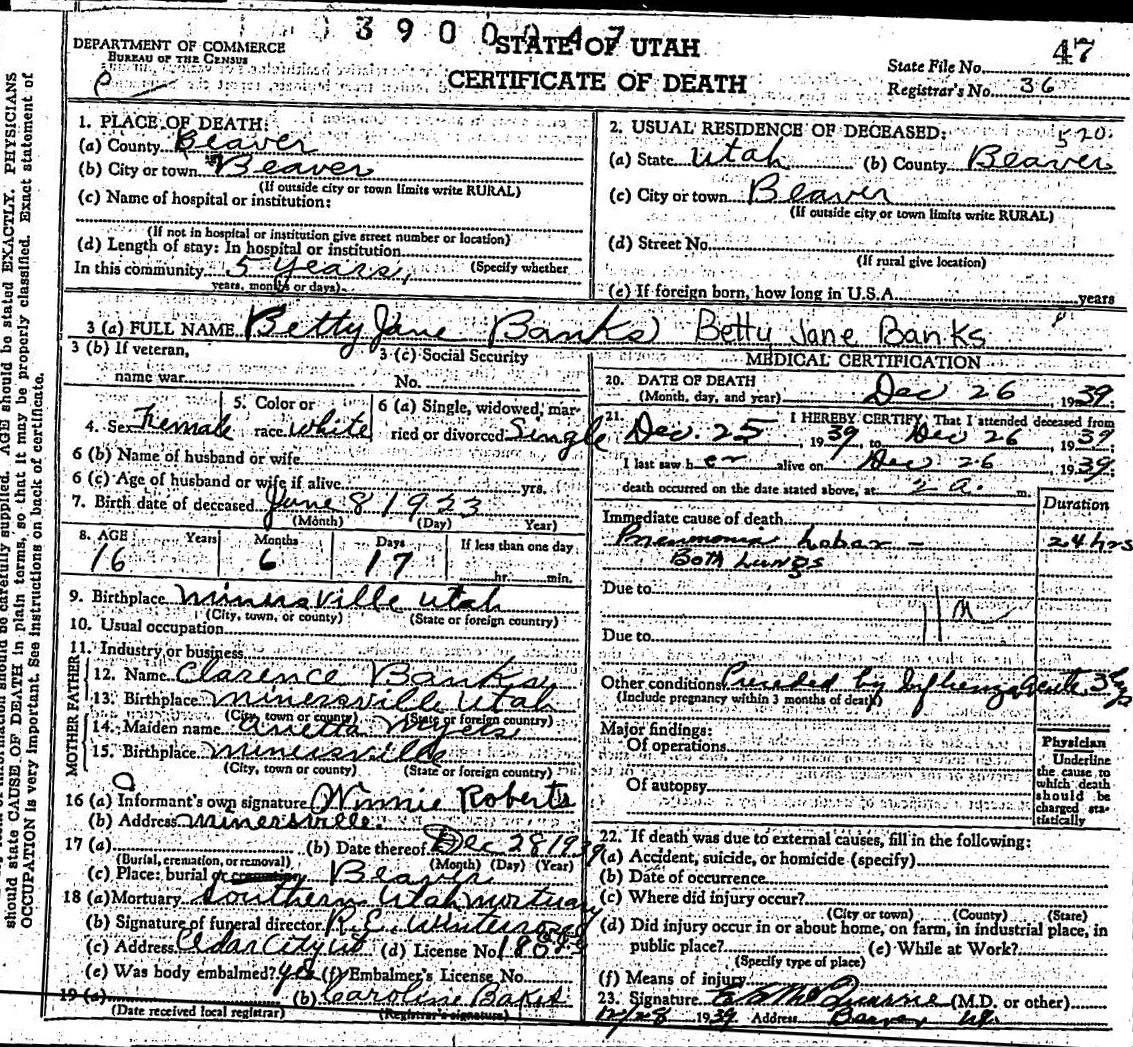 3900047
DEPARTMENT OF COMMERCE
BUREAU OF THE CENSUS
STATE OF UTAH
CERTIFICATE OF DEATH
47
State File No.
Registrar's No. 36
1. PLACE OF DEATH:
(a) County Beaver
(b) City or town Beaver
(If outside city or town limits write RURAL)
(c) Name of hospital or institution:
(If not in hospital or institution give street number or location)
(d) Length of stay: In hospital or institution
In this community 5 years, (Specify whether
years, months or days)
2. USUAL RESIDENCE OF DECEASED: 520
(a) State Utah (b) County Beaver
(c) City or town Beaver
(If outside city or town limits write RURAL)
(d) Street No.
(If rural give location)
(e) If foreign born, how long in U.S.A. years
3 (a) FULL NAME Betty Jane Banks Betty Jane Banks
3 (b) If veteran,
name war
3 (c) Social Security
No.
4. Sex Female
5. Color or
race White
6 (a) Single, widowed, mar-
ried or divorced Single
6 (b) Name of husband or wife
6 (c) Age of husband or wife if alive yrs.
7. Birth date of deceased June 8 1923
(Month) (Day) Year)
8. AGE Years Months Days If less than one day
16 6 17 hr. min.
9. Birthplace Minersville Utah
(City, town, or county) (State or foreign country)
10. Usual occupation
11. Industry or business
FATHER
12. Name Clarence Banks
13. Birthplace Minersville Utah
(City, town or county) (State or foreign country)
MOTHER
14. Maiden name Myers
15. Birthplace Minersville
(City, town or county) (State or foreign country)
16 (a) Informant's own signature Winnie Roberts
(b) Address Minersville.
17 (a) (b) Date thereof Dec 28 1939
(Burial, cremation, or removal) (Month) (Day) (Year)
(c) Place: burial or cremation Beaver
18 (a) Mortuary Southern Utah Mortuary
(b) Signature of funeral director R.E.
(c) Address Cedar City Ut (d) License No.
(e) Was body embalmed? yes (f) Embalmer's License No.
19 (a) (b) Caroline
(Date received local registrar) (Registrar's signature)
MEDICAL CERTIFICATION
20. DATE OF DEATH
(Month, day, and year) Dec 26, 1939.
21. I HEREBY CERTIFY, That I attended deceased from
Dec. 25, 1939 to Dec 26, 1939.
I last saw her alive on Dec 26, 1939.
death occurred on the date stated above, at 2 a. m.
Duration
Immediate cause of death
Pneumonia Lobar - 24 hrs
Both Lungs
Due to
Due to
Other conditions Preceded by Influenza acute
(Include pregnancy within 3 months of death)
Major findings:
Of operations
Of autopsy
Physician
Underline
the cause to
which death
should be
charged sta-
tistically
22. If death was due to external causes, fill in the following:
(a) Accident, suicide, or homicide (specify)
(b) Date of occurrence
(c) Where did injury occur?
(City or town) (County) (State)
(d) Did injury occur in or about home, on farm, in industrial place, in
public place? (e) While at Work?
(Specify type of place)
(f) Means of injury
23. Signature (M.D. or other)
12/28 1939 Address Beaver Ut.
should state CAUSE OF DEATH in plain terms, so that it may be properly classified. Exact statement of
OCCUPATION is very important. See instructions on back of certificate.
should be carefully supplied. AGE should be stated EXACTLY. PHYSICIANS